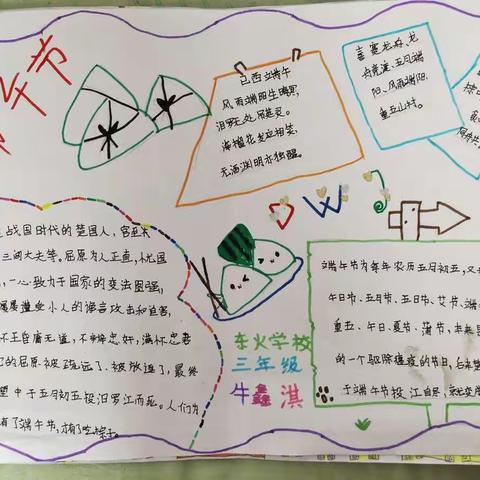 午节
己酉端午
风雨端阳生晦冥,
汨罗无处吊英灵。
海榴花发应相笑,
无酒渊明亦独醒。
喜赛龙舟、龙
舟竞渡、五月端
阳、风雨端阳、
重五山村。
DWJ
战国时代的楚国人,官至
三闾大夫等。屈原为人正直,忧国
一心致力于国家的变法图强,
遭小人的谗言攻击和迫害,
怀王昏庸无道,不辨忠奸,满怀忠君
的屈原被疏远了、被放逐了,最终
望中于五月初五投汨罗江而死。人们为
有了端午节,才有了吃粽子。
东火学校
三年级
牛鑫淇
端午节为每年农历五月初五,又
午日节、五月节、五日节、艾节、端
重五、午日、夏节、蒲节,本来是
的一个驱除瘟疫的节日,后来楚
于端午节投江自尽,就变成